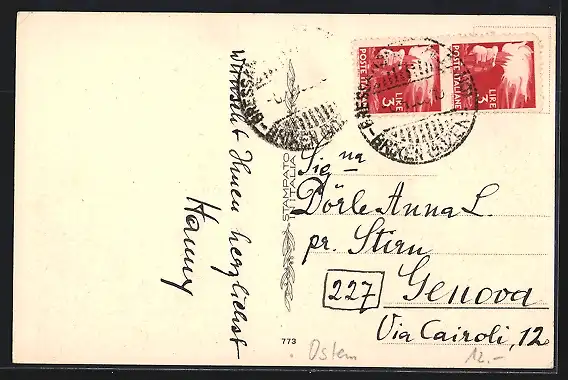 Wünscht Ihnen herzlichst
Hanny
BRESSANONE
BRIXEN
STAMPATO
IN ITALIA
773
POSTE ITALIANE
LIRE
3
POSTE ITALIANE
LIRE
3
Sig na
Dörle Anna L.
pr. Stirn
227 Genova
Via Cairoli, 12
Ostern
12.-